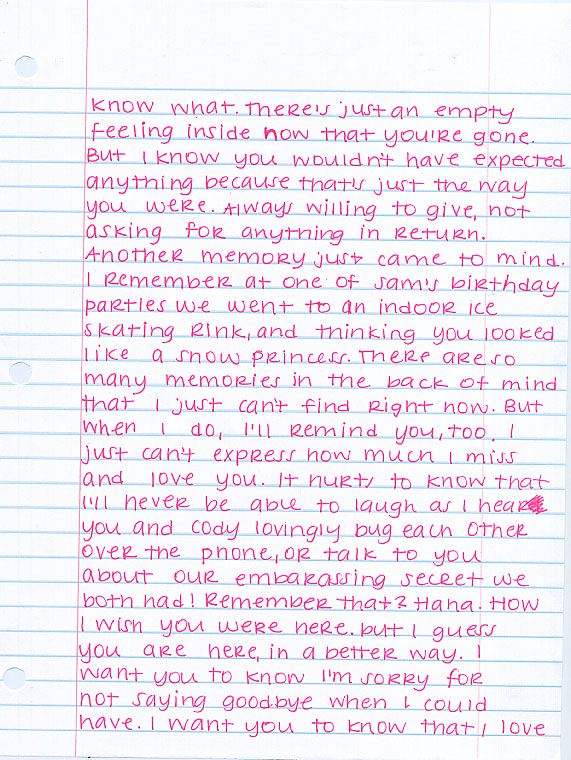 know what. There's just an empty
feeling inside now that you're gone.
But I know you wouldn't have expected
anything because that's just the way
you were. Always willing to give, not
asking for anything in return.
Another memory just came to mind.
I remember at one of Sam's birthday
parties we went to an indoor ice
skating rink, and thinking you looked
like a snow princess. There are so
many memories in the back of mind
that I just can't find right now. But
when I do, I'll remind you, too. I
just can't express how much I miss
and love you. It hurts to know that
I'll never be able to laugh as I hear
you and Cody lovingly bug each other
over the phone, or talk to you
about our embarassing secret we
both had! Remember that? Haha. How
I wish you were here. but I guess
you are here, in a better way. I
want you to know I'm sorry for
not saying goodbye when I could
have. I want you to know that I love